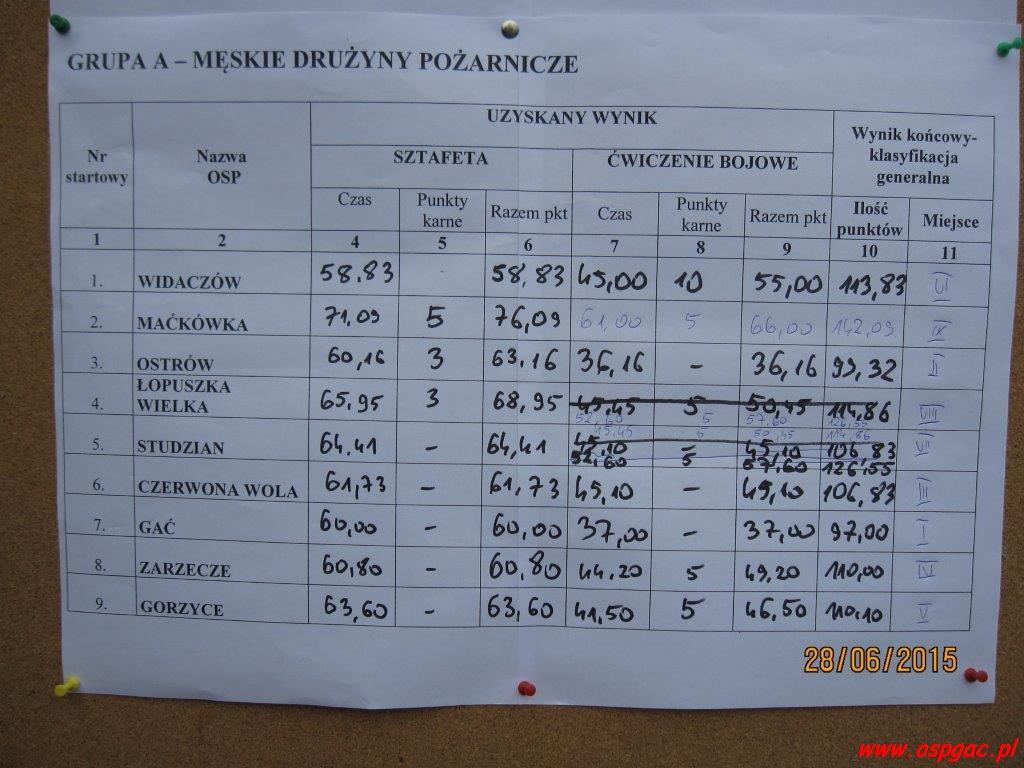 GRUPA A – MĘSKIE DRUŻYNY POŻARNICZE
Nr startowy
Nazwa OSP
UZYSKANY WYNIK
Wynik końcowy-klasyfikacja generalna
SZTAFETA
ĆWICZENIE BOJOWE
Czas Punkty karne Razem pkt Czas Punkty karne Razem pkt Ilość punktów Miejsce
1 2 4 5 6 7 8 9 10 11
1. WIDACZÓW 58.83 58,83 45,00 10 55,00 113,83 VI
2. MAĆKÓWKA 71,09 5 76,09 61,00 5 66,00 142,09 IX
3. OSTRÓW 60,16 3 63,16 36,16 – 36,16 99,32 II
4. ŁOPUSZKA WIELKA 65,95 3 68,95 45,45 5 50,45 114,86 VIII
52,60 5 57,60 126,55
5. STUDZIAN 64,41 – 64,41 45,10 – 45,10 106,83 VII
45.45 5 50,45 114,86
52,60 5 57,60 126,55
6. CZERWONA WOLA 61,73 – 61,73 45,10 – 45,10 106,83 III
7. GAĆ 60,00 – 60,00 37,00 – 37,00 97,00 I
8. ZARZECZE 60,80 – 60,80 44,20 5 49,20 110,00 IV
9. GORZYCE 63,60 – 63,60 41,50 5 46,50 110,10 V
28/06/2015
www.ospgac.pl